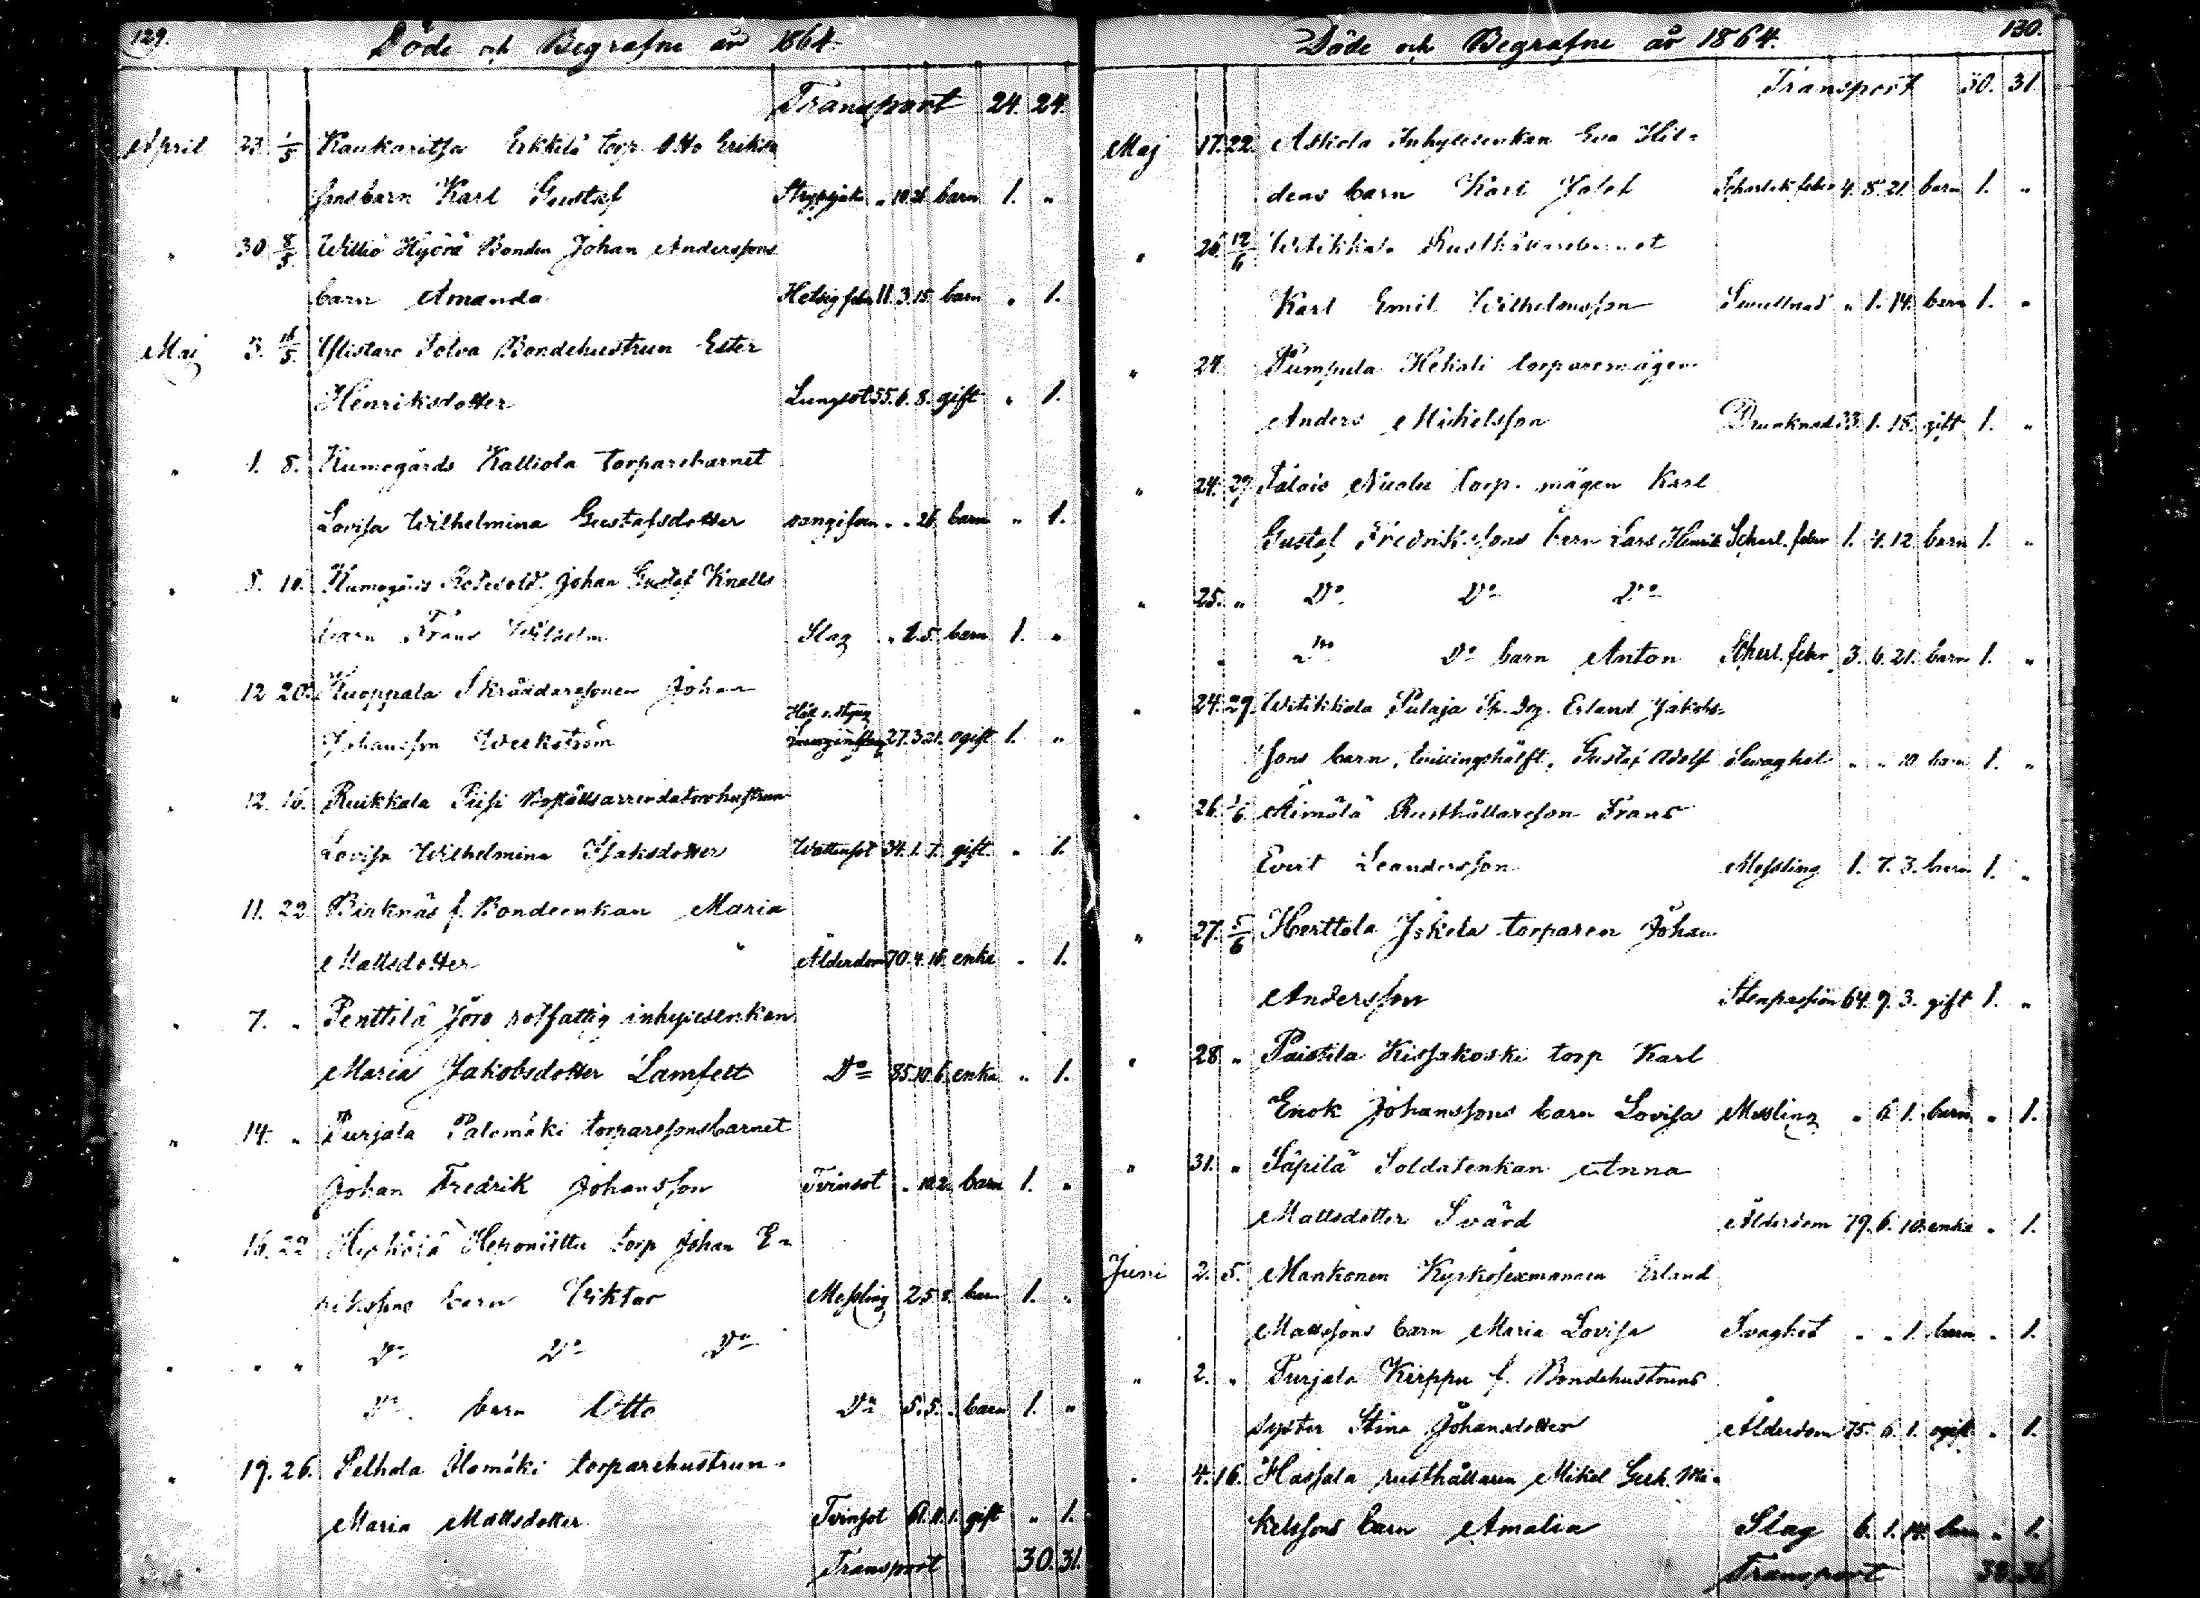 129.
Döde och Begrafne år 1864.
Transport 24. 24.
April 23. 1/5 Kaukaritsa Erkkilä torp. Otto Eriks
sons barn Karl Gustaf Strypsjuka „ 10. 21. barn 1. „
„ 30. 8/5 Willio Hyörä Bonden Johan Anderssons
barn Amanda Hetsig feber 11. 3. 15. barn „ 1.
Maj 3. Ylistaro Tolva Bondehustrun Ester
Henriksdotter Lungsot 55. 6. 8. gift „ 1.
„ 1. 8. Kumogårds Kalliola torparebarnet
Lovisa Wilhelmina Gustafsdotter „ „ 21. barn „ 1.
„ 8. Kumogårds Johan Gustaf Knalls
barn Frans Wilhelm Slag barn 1. „
„ 12. 20. Kuoppala Skräddaresonen Johan
Johansson Weckström Håll o. styng 27. 3. 21. ogift 1. „
„ 12. 16. Ruikkala Piisi Boställsarrendatorhustrun
Lovisa Wilhelmina Isaksdotter Wattensot 34. 1. gift „ 1.
11. 22. Birknäs f. Bondeenkan Maria
Mattsdotter Ålderdom 70. 4. 16. enka „ 1.
„ 7. „ Penttilä Jöro rotfattig inhysesenkan
Maria Jakobsdotter Lamfelt Do 85. 10. 6. enka „ 1.
„ 14. „ Purjala Palomäki torparesonsbarnet
Johan Fredrik Johansson Tvinsot barn 1. „
„ 16. 22. Heponiittu torp Johan E-
rikssons barn Viktor Messling 2. 5. 8. barn 1. „
„ „ „ Do Do Do
Do barn Otto Do 5. 5. „ barn 1. „
„ 19. 26. Pelhola Alomäki torparehustrun
Maria Mattsdotter Tvinsot 61. 11. 1. gift „ 1.
Transport 30. 31.
130.
Döde och Begrafne år 1864.
Transport 30. 31.
Maj 17. 22. Askola Inhysesenkan Eva Hil-
dens barn Karl Josef Scharlak. feber 4. 8. 21. barn 1. „
„ 26. 12/6 Witikkala Rusthållarebarnet
Karl Emil Wilhelmsson „ 1. 14. barn 1. „
„ 24. Pumpula Hekali torparemågen
Anders Michelsson Drunknad 33. 1. 18. gift 1. „
„ 24. 29. torp. mågen Karl
Gustaf Fredrikssons barn Lars Henrik Scharl. feber 1. 4. 12. barn 1. „
„ 25. „ Do Do Do
„ Do Do barn Anton Scharl. feber 3. 6. 21. barn 1. „
„ 24. 29. Witikkala Pulaja Erland Jakobs-
sons barn, tvillingshälft, Gustaf Adolf Svaghet „ „ 10. barn 1. „
„ 26. 1/6 Äimälä Rusthållareson Frans
Evert Leandersson Messling 1. 7. 3. barn 1. „
„ 27. 5/6 Herttola Iskela torparen Johan
Andersson Stenpassion 64. 9. 3. gift 1. „
„ 28. „ Paistila Kissakoski torp Karl
Enok Johanssons barn Lovisa Messling „ 6. 1. barn „ 1.
„ 31. „ Säpilä Soldatenkan Anna
Mattsdotter Svärd Ålderdom 79. 6. 10. enka „ 1.
Juni 2. 5. Mankonen Kyrkosexmannen Erland
Matssons barn Maria Lovisa Svaghet „ „ 1. barn „ 1.
„ 2. „ Purjala Kirppu f. Bondehustruns
syster Stina Johansdotter Ålderdom 75. 6. 1. ogift „ 1.
„ 4. 16. Hassala rusthållaren Mikel Gerh. Mi-
kelssons barn Amalia Slag 6. 1. 14. barn „ 1.
Transport